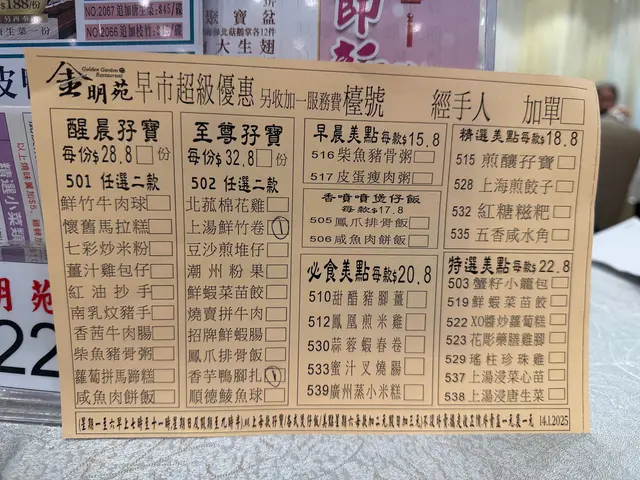 $188/份
NO.2066 追加唐生菜 $45/碟
NO.2067 追加枝竹 $45/碟
聚寶盆
大生翅
金明苑
Golden Garden
Restaurant
早市超級優惠 另收加一服務費 檯號 經手人 加單
醒晨孖寶
每份$28.8 份
501 任選二款
鮮竹牛肉球
懷舊馬拉糕
七彩炒米粉
薑汁雞包仔
紅油抄手
南乳炆豬手
香茜牛肉腸
柴魚豬骨粥
蘿蔔拼馬蹄糕
咸魚肉餅飯
至尊孖寶
每份$32.8 份
502 任選二款
北菰棉花雞
上湯鮮竹卷 1
豆沙煎堆仔
潮州粉果
鮮蝦菜苗餃
燒賣拼牛肉
招牌鮮蝦腸
鳳爪排骨飯
香芋鴨腳扎 1
順德鯪魚球
早晨美點 每款$15.8
516 柴魚豬骨粥
517 皮蛋瘦肉粥
香噴噴煲仔飯
每款$17.8
505 鳳爪排骨飯
506 咸魚肉餅飯
必食美點 每款$20.8
510 甜醋豬腳薑
512 鳳凰煎米雞
530 蒜蓉蝦春卷
533 蜜汁叉燒腸
539 廣州蒸小米糕
精選美點 每款$18.8
515 煎釀孖寶
528 上海煎餃子
532 紅糖糍粑
535 五香咸水角
特選美點 每款$22.8
503 蟹籽小籠包
519 鮮蝦菜苗餃
522 XO醬炒蘿蔔糕
523 花彫醉雞腳
529 瑤柱珍珠雞
537 上湯浸菜心苗
538 上湯浸唐生菜
14.1.2025
精選小菜類
明苑
22